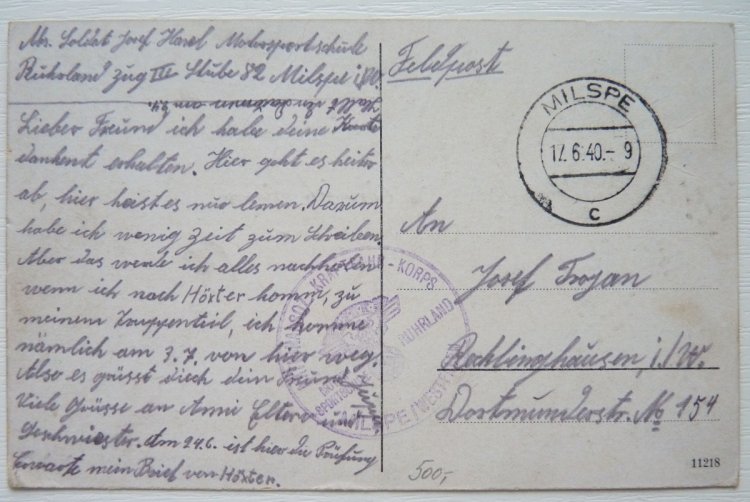 Abs. Soldat Josef Hasel Motorsportschule
Ruhrland Zug III Stube 82 Milspe i/W.
Lieber Freund ich habe deine Karte
dankent erhalten. Hier geht es heiter
ab, hier heist es nur lernen. Darum
habe ich wenig Zeit zum Schreiben.
Aber das werde ich alles nachholen
wenn ich nach Höxter komm, zu
meinem Truppenteil, ich komme
nämlich am 3.7. von hier weg.
Also es grüsst dich dein Freund
Viele Grüsse an Anni Eltern und
Geschwister. Am 24.6. ist hier die Prüfung
Erwarte mein Brief von Höxter.
Feldpost
MILSPE
17.6.40.- 9
c
An
Josef Trojan
Recklinghausen, i./W.
Dortmunderstr. No 154
KRAFTFAHR-KORPS
RUHRLAND
MILSPE
500,-
11218